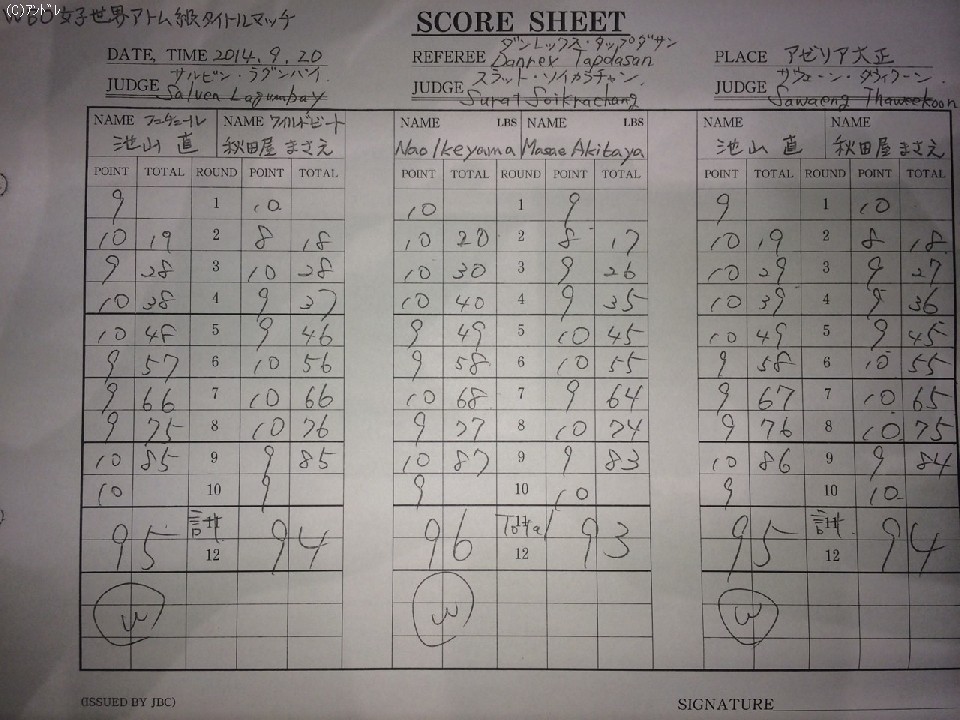 (C)アンドレ
WBO女子世界アトム級タイトルマッチ
SCORE SHEET
DATE, TIME 2014.9.20 REFEREE ダンレックス・タップダサン Danrex Tapdasan PLACE アゼリア大正
JUDGE サルビン・ラグンバイ Salven Lagumbay JUDGE スラット・ソイカラチャン Surat Soikrachang JUDGE サウェーン・タウィクーン Sawaeng Thaweekoon
NAME フュチュール NAME ワイルドビート NAME LBS NAME LBS NAME NAME
池山 直 秋田屋 まさえ Nao Ikeyama Masae Akitaya 池山 直 秋田屋 まさえ
POINT TOTAL ROUND POINT TOTAL POINT TOTAL ROUND POINT TOTAL POINT TOTAL ROUND POINT TOTAL
9 1 10 10 1 9 9 1 10
10 19 2 8 18 10 20 2 8 17 10 19 2 8 18
9 28 3 10 28 10 30 3 9 26 10 29 3 9 27
10 38 4 9 37 10 40 4 9 35 10 39 4 9 36
10 48 5 9 46 9 49 5 10 45 10 49 5 9 45
9 57 6 10 56 9 58 6 10 55 9 58 6 10 55
9 66 7 10 66 10 68 7 9 64 9 67 7 10 65
9 75 8 10 76 9 77 8 10 74 9 76 8 10 75
10 85 9 9 85 10 87 9 9 83 10 86 9 9 84
10 10 9 9 10 10 9 10 10
95 計 94 96 Total 93 95 計 94
12 12 12
W W W
(ISSUED BY JBC) SIGNATURE